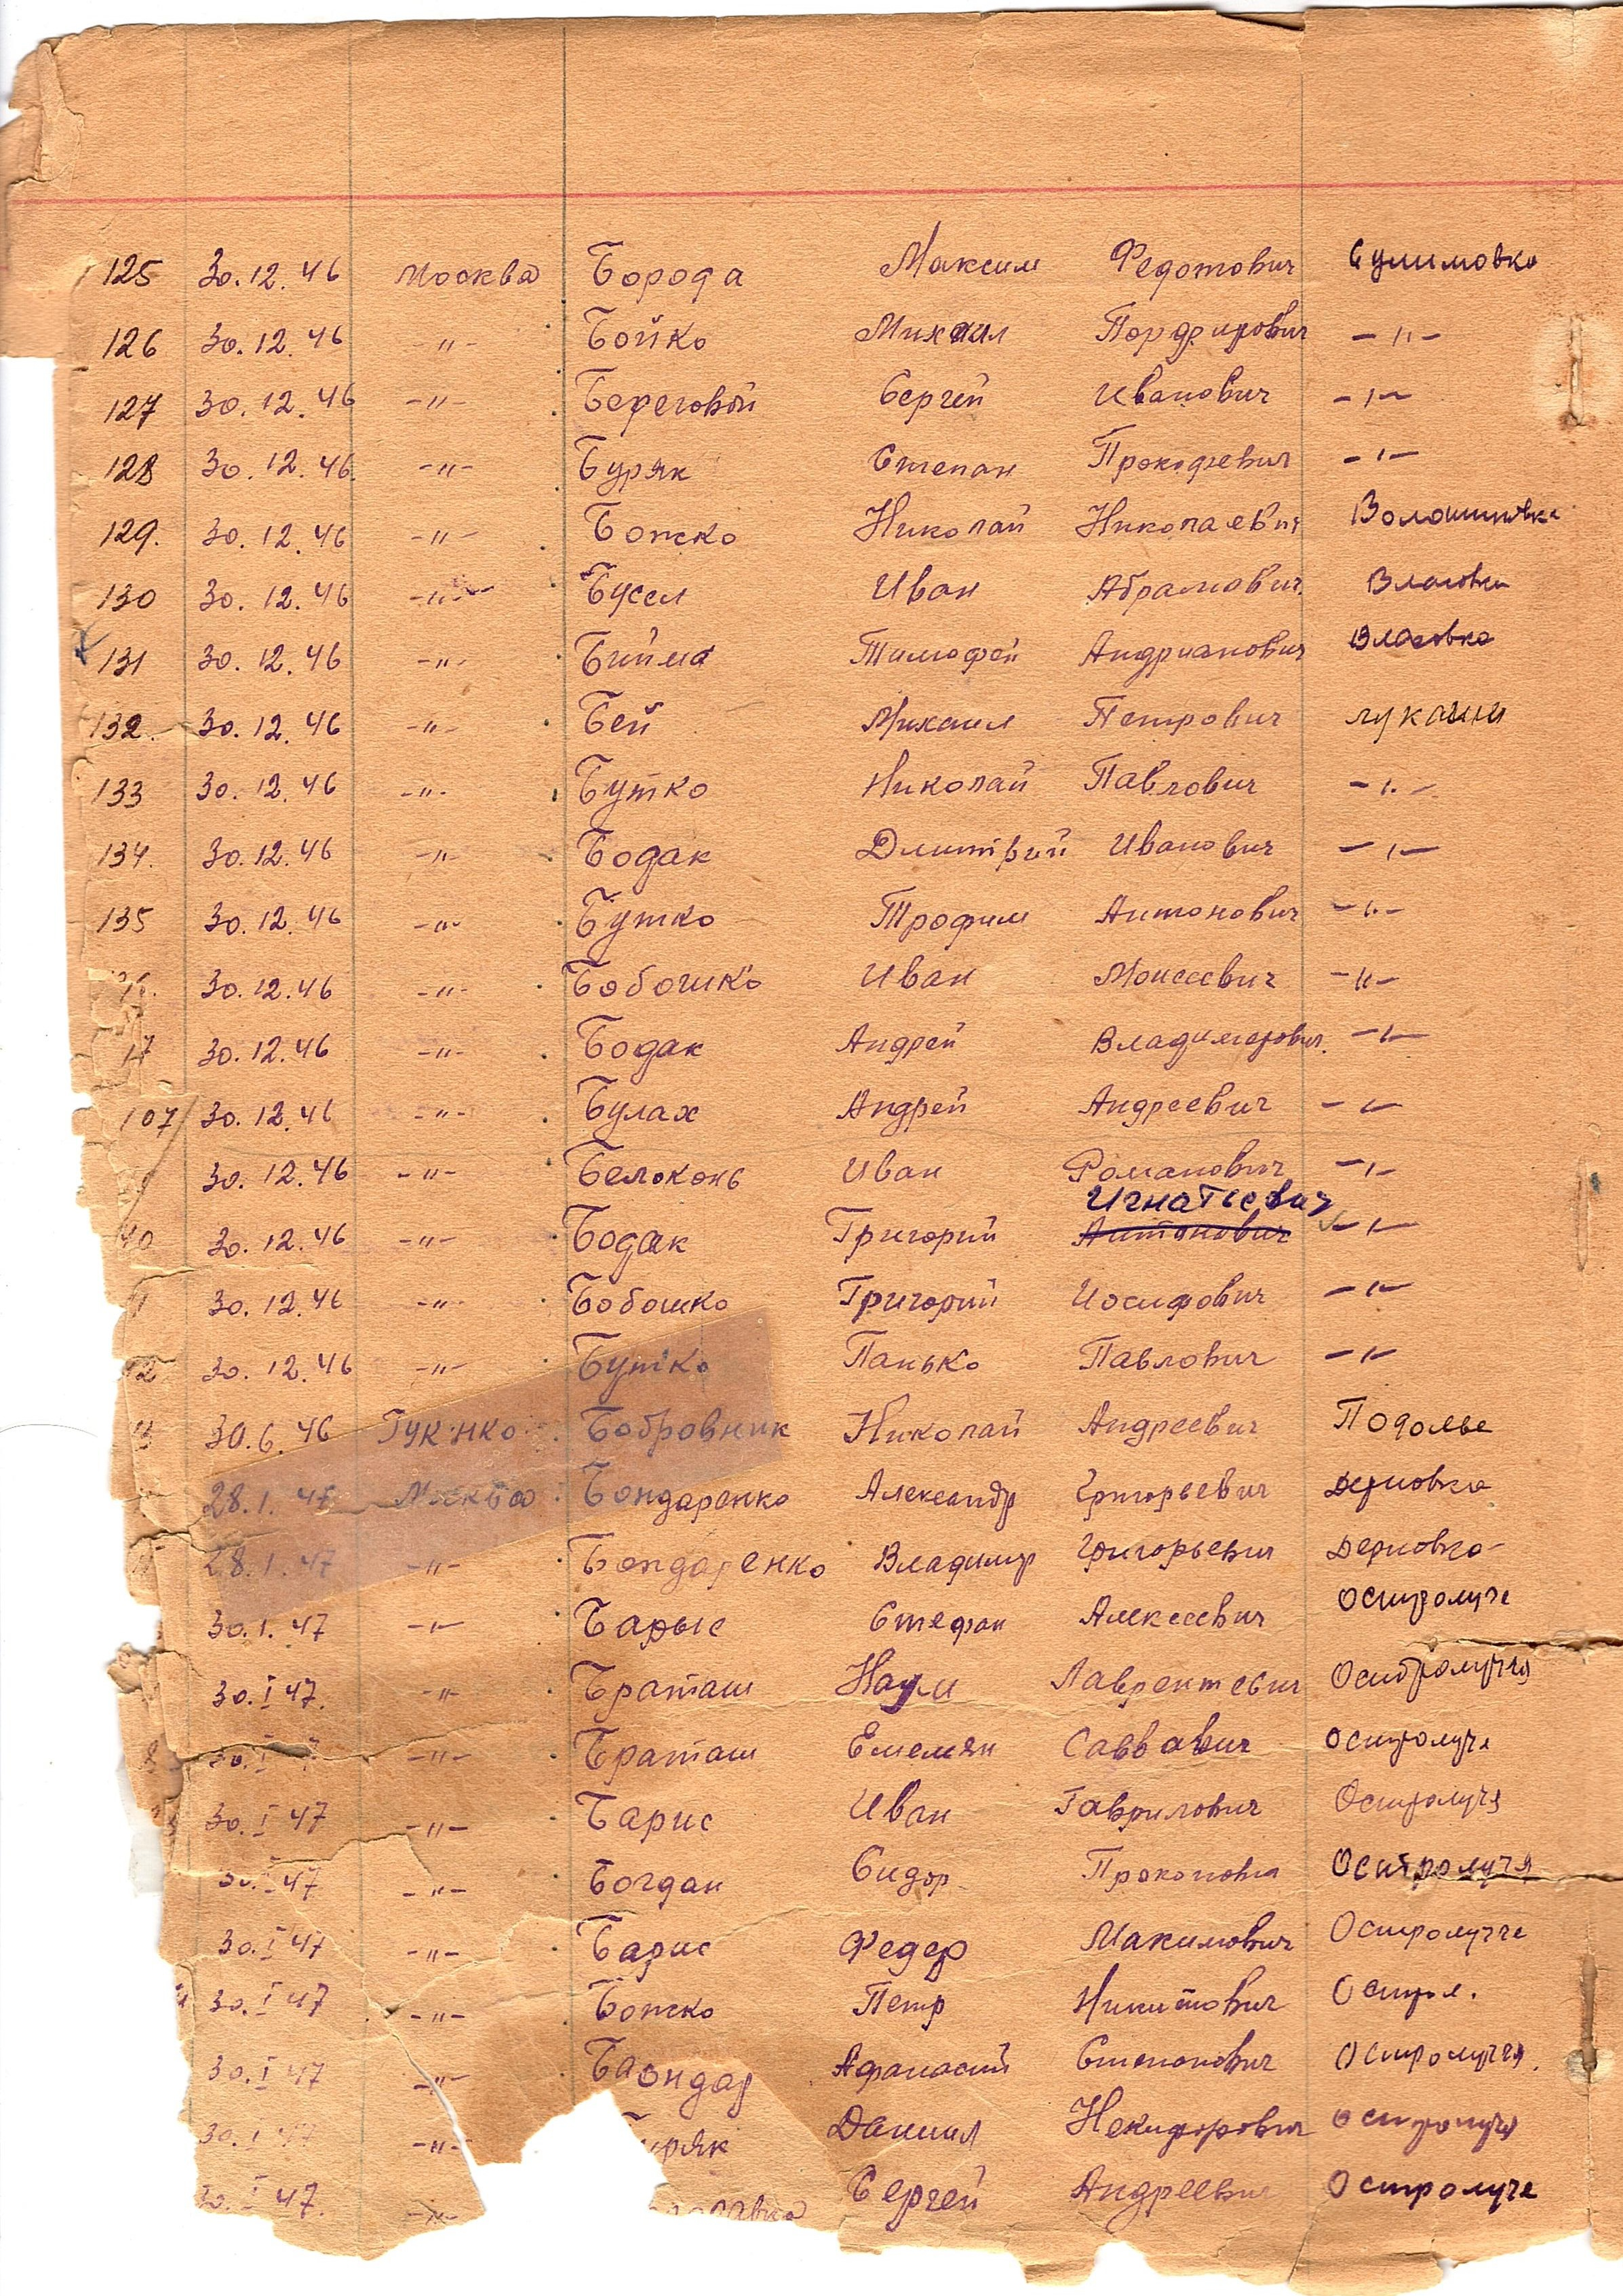 125 30.12.46 Москва Борода Максим Федотович Сулимовка
126 30.12.46 -"- Бойко Михаил Порфирович -"-
127 30.12.46 -"- Береговой Сергей Иванович -"-
128 30.12.46 -"- Буряк Степан Прокофевич -"-
129. 30.12.46 -"- Божко Николай Николаевич Волошиновка
130 30.12.46 -"- Бусел Иван Абрамович
131 30.12.46 -"- Бийма Тимофей Андрианович Власовка
132. 30.12.46 -"- Бей Михаил Петрович Лукаши
133 30.12.46 -"- Бутко Николай Павлович -"-
134. 30.12.46 -"- Бодак Дмитрий Иванович -"-
135 30.12.46 -"- Бутко Трофим Антонович -"-
30.12.46 -"- Бобошко Иван Моисеевич -"-
30.12.46 -"- Бодак Андрей Владимирович. -"-
107 30.12.46 -"- Булах Андрей Андреевич -"-
30.12.46 -"- Белоконь Иван Романович -"-
Игнатьевич
40 30.12.46 -"- Бодак Григорий Антонович -"-
30.12.46 -"- Бобошко Григорий Иосифович -"-
42 30.12.46 -"- Бутко Панько Павлович -"-
30.6.46 Бобровник Николай Андреевич Подолье
28.1.47 Москва Бондаренко Александр Григорьевич Дерновка
28.1.47 -"- Бондаренко Владимир Григорьевич Дерновка
30.1.47 -"- Барыс Стефан Алексеевич Остролуче
30.I 47. -"- Браташ Наум Лаврентевич Остролучья
30.I -"- Браташ Емельян Саввавич Остролуче
30.I 47 -"- Барис Иван Гаврилович Остролучя
30.I 47 -"- Богдан Сидор Остролучя
30.I 47 -"- Барис Федер Макимович Остролучче
30.I 47 -"- Божко Петр НикитовичОстрол.
30.I 47 -"- Баондар Афанасий Степанович Остролучья.
30.I 47 -"- уряк Даниил Некифорович Остролучя
30.I 47. -"- Сергей Андреевич Остролуче